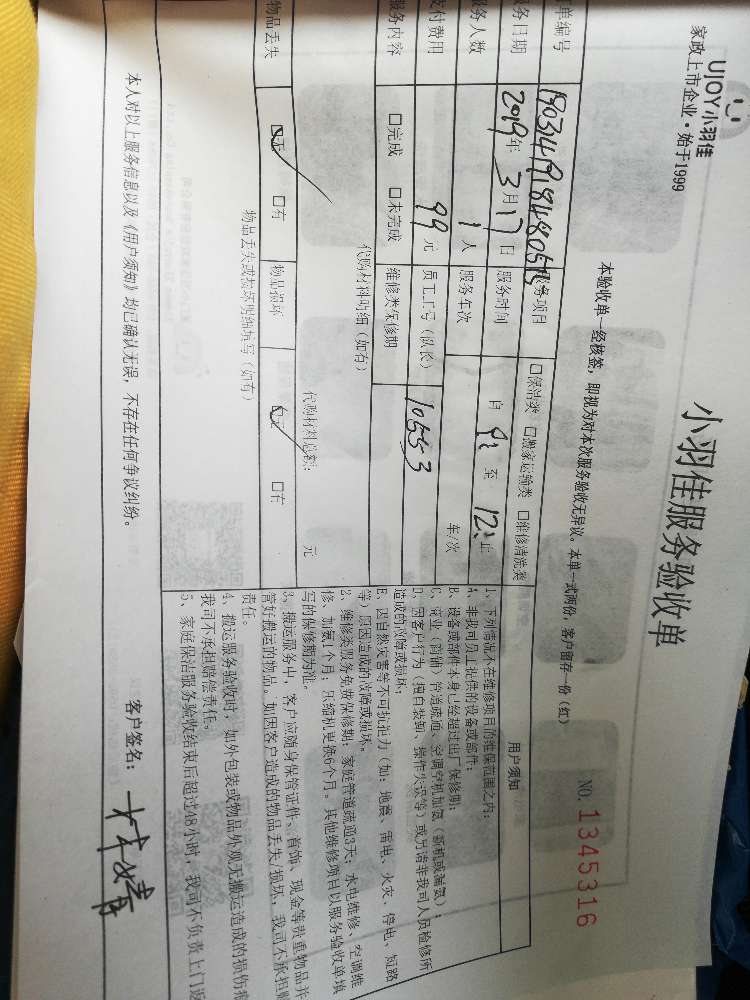 UJOY小羽佳
家政上市企业·始于1999
小羽佳服务验收单
本验收单一经核签，即视为对本次服务验收无异议。本单一式两份，客户留存一份（红）
NO. 1345316
单编号
服务项目 □保洁类 □搬家运输类 □维修清洗类
务日期 2019年 3月17日 服务时间 自 9: 至 12: 止
务人数 1人 服务车次 车/次
支付费用 99元 员工工号（队长） 10553
服务内容 □完成 □未完成 维修类保修期
代购材料明细（如有）
代购材料总额： 元
物品丢失 □无 □有 物品损坏 □无 □有
物品丢失或损坏明细填写（如有）
用户须知
1、下列情况不在维修项目的维保范围之内：
A、非我司员工提供的设备或部件；
B、设备或部件本身已经超过出厂保修期；
C、商业（商铺）管道疏通、空调空机加氨（新机或漏氨）；
D、因客户行为（擅自装卸、操作失误等）或另请非我司人员检修所
造成的故障或损坏；
E、因自然灾害等不可抗拒力（如：地震、雷电、火灾、停电、短路
等）原因造成的故障或损坏。
2、维修类服务免费保修期：家庭管道疏通3天；水电维修、空调维
修、加氨1个月；压缩机更换6个月。其他维修项目以服务验收单填
写的保修期为准。
3、搬运服务中，客户应随身保管证件、首饰、现金等贵重物品并
管好搬运的物品。如因客户造成的物品丢失/损坏，我司不承担
责任。
4、搬运服务验收时，如外包装或物品外观无搬运造成的损伤
我司不承担赔偿责任。
5、家庭保洁服务验收结束后超过48小时，我司不负责上门返
本人对以上服务信息以及《用户须知》均已确认无误，不存在任何争议纠纷。
客户签名：